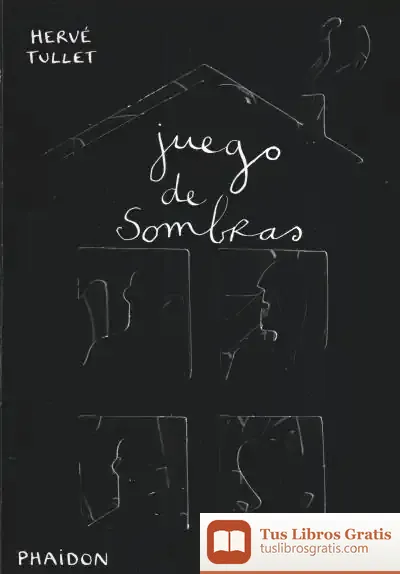 HERVÉ
TULLET
juego
de
SombRas
PHAIDON
Tus Libros Gratis
tuslibrosgratis.com